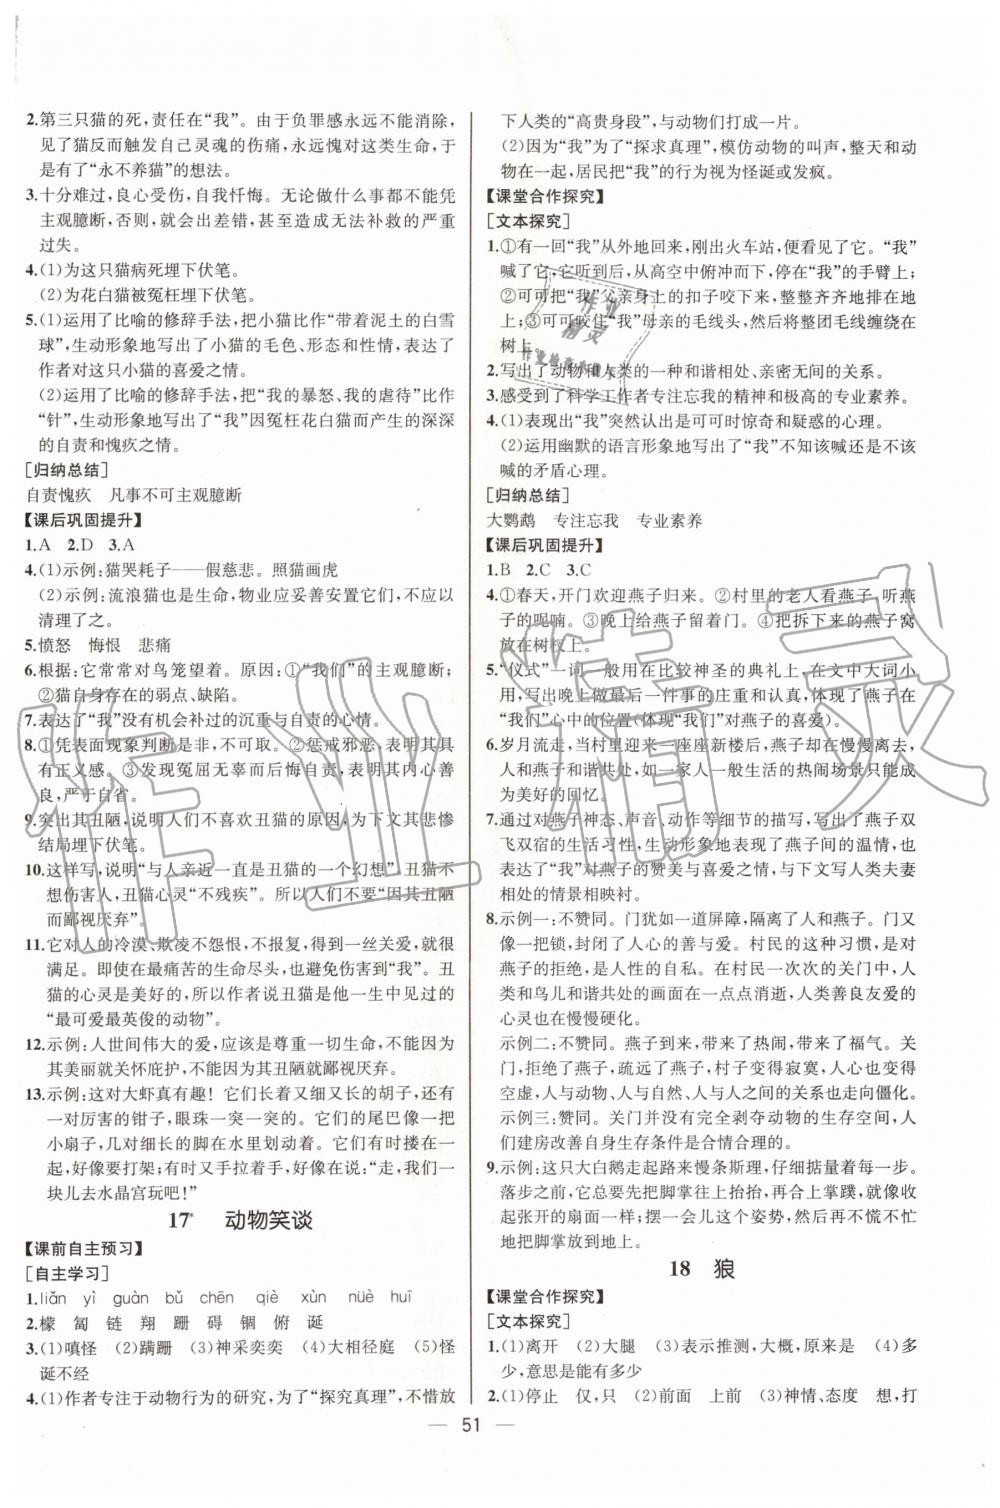 2.第三只猫的死,责任在“我”。由于负罪感永远不能消除,
见了猫反而触动自己灵魂的伤痛,永远愧对这类生命,于
是有了“永不养猫”的想法。
3.十分难过,良心受伤,自我忏悔。无论做什么事都不能凭
主观臆断,否则,就会出差错,甚至造成无法补救的严重
过失。
4.(1)为这只猫病死埋下伏笔。
(2)为花白猫被冤枉埋下伏笔。
5.(1)运用了比喻的修辞手法,把小猫比作“带着泥土的白雪
球”,生动形象地写出了小猫的毛色、形态和性情,表达了
作者对这只小猫的喜爱之情。
(2)运用了比喻的修辞手法,把“我的暴怒、我的虐待”比作
“针”,生动形象地写出了“我”因冤枉花白猫而产生的深深
的自责和愧疚之情。
[归纳总结]
自责愧疚 凡事不可主观臆断
【课后巩固提升】
1.A 2.D 3.A
4.(1)示例:猫哭耗子——假慈悲。照猫画虎
(2)示例:流浪猫也是生命,物业应妥善安置它们,不应以
清理了之。
5.愤怒 悔恨 悲痛
6.根据:它常常对鸟笼望着。原因:①“我们”的主观臆断;
②猫自身存在的弱点、缺陷。
7.表达了“我”没有机会补过的沉重与自责的心情。
8.①凭表面现象判断是非,不可取。②惩戒邪恶,表明其具
有正义感。③发现冤屈无辜而后悔自责,表明其内心善
良,严于自省。
9.突出其丑陋,说明人们不喜欢丑猫的原因,为下文其悲惨
结局埋下伏笔。
10.这样写,说明“与人亲近一直是丑猫的一个幻想”,丑猫不
想伤害人,丑猫心灵“不残疾”。所以人们不要“因其丑陋
而鄙视厌弃”。
11.它对人的冷漠、欺凌不怨恨,不报复,得到一丝关爱,就很
满足。即使在最痛苦的生命尽头,也避免伤害到“我”。丑
猫的心灵是美好的,所以作者说丑猫是他一生中见过的
“最可爱最英俊的动物”。
12.示例:人世间伟大的爱,应该是尊重一切生命,不能因为
其美丽就关怀庇护,不能因为其丑陋就鄙视厌弃。
13.示例:这对大虾真有趣!它们长着又细又长的胡子,还有
一对厉害的钳子,眼珠一突一突的。它们的尾巴像一把
小扇子,几对细长的脚在水里划动着。它们有时搂在一起,
好像要打架;有时又手拉着手,好像在说:“走,我们一
块儿去水晶宫玩吧!”
17* 动物笑谈
【课前自主预习】
[自主学习]
1.liǎn yì guàn bǔ chēn qiè xùn nüè huī
2.檬 匐 链 翔 跚 碍 锢 俯 诞
3.(1)嗔怪 (2)蹒跚 (3)神采奕奕 (4)大相径庭 (5)怪
诞不经
4.(1)作者专注于动物行为的研究,为了“探究真理”,不惜放
下人类的“高贵身段”,与动物们打成一片。
(2)因为“我”为了“探求真理”,模仿动物的叫声,整天和动
物在一起,居民把“我”的行为视为怪诞或发疯。
【课堂合作探究】
[文本探究]
1.①有一回“我”从外地回来,刚出火车站,便看见了它。“我”
喊了它,它听到后,从高空中俯冲而下,停在“我”的手臂上;
②可可把“我”父亲身上的扣子咬下来,整整齐齐地排在地
上;③可可咬住“我”母亲的毛线头,然后将整团毛线缠绕在
树上。
2.写出了动物和人类的一种和谐相处、亲密无间的关系。
3.感受到了科学工作者专注忘我的精神和极高的专业素养。
4.(1)表现出“我”突然认出是可可时惊奇和疑惑的心理。
(2)运用幽默的语言形象地写出了“我”不知该喊还是不该
喊的矛盾心理。
[归纳总结]
大鹦鹉 专注忘我 专业素养
【课后巩固提升】
1.B 2.C 3.C
4.①春天,开门欢迎燕子归来。②村里的老人看燕子,听燕
子的呢喃。③晚上给燕子留着门。④把拆下来的燕子窝
放在树杈上。
5.“仪式”一词一般用在比较神圣的典礼上,在文中大词小
用,写出晚上做最后一件事的庄重和认真,体现了燕子在
“我们”心中的位置(体现“我们”对燕子的喜爱)。
6.岁月流走,当村里迎来一座座新楼后,燕子却在慢慢离去,
人和燕子和谐共处,如一家人一般生活的热闹场景只能成
为美好的回忆。
7.通过对燕子神态、声音、动作等细节的描写,写出了燕子双
飞双宿的生活习性,生动形象地表现了燕子间的温情,也
表达了“我”对燕子的赞美与喜爱之情,与下文写人类夫妻
相处的情景相映衬。
8.示例一:不赞同。门犹如一道屏障,隔离了人和燕子。门又
像一把锁,封闭了人心的善与爱。村民的这种习惯,是对
燕子的拒绝,是人性的自私。在村民一次次的关门中,人
类和鸟儿和谐共处的画面在一点点消逝,人类善良友爱的
心灵也在慢慢僵化。
示例二:不赞同。燕子到来,带来了热闹,带来了福气。关
门,拒绝了燕子,疏离了燕子,村子变得寂寞,人心也变得
空虚,人与动物、人与自然、人与人之间的关系也走向僵化。
示例三:赞同。关门并没有完全剥夺动物的生存空间,人
们建房改善自身生存条件是合情合理的。
9.示例:这只大白鹅走起路来慢条斯理,仔细掂量着每一步。
起步之前,它总要先把脚掌往上抬抬,再把上掌蹼,就像
收起张开的扇面一样;摆一会儿这个姿势,然后再不慌不忙
地把脚掌放到地上。
18 狼
【课堂合作探究】
[文本探究]
1.(1)离开 (2)大腿 (3)表示推测,大概,原来是 (4)多
少,意思是能有多少
2.(1)停止 仅,只 (2)前面 上前 (3)神情、态度 想,打
51
作业精灵